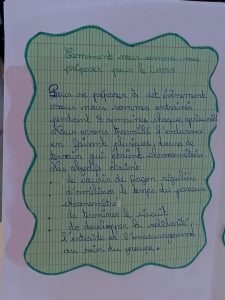 Comment nous sommes nous
préparés pour le Cross
Pour se préparer à cet évènement
nous nous sommes entrainés
pendant 3 semaines chaque après-midi
Nous avons travaillé l'endurance
en faisant plusieurs tours de
terrain qui étaient chronométrés.
Les objectifs étaient
de courir de façon régulière
d'améliorer le temps du parcours
chronométré
de terminer le circuit
de développer la solidarité,
l'entraide et l'encouragement
au sein du groupe.